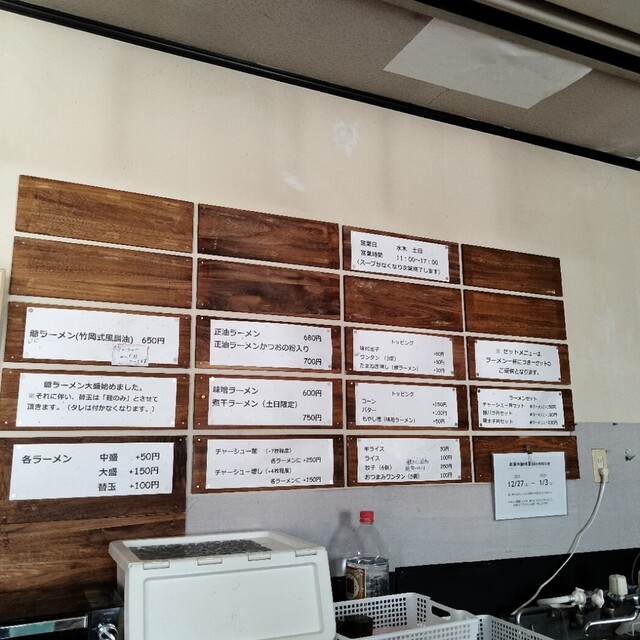 営業日 水木 土日
営業時間 11:00~17:00
(スープがなくなり次第終了します)
爺ラーメン(竹岡式風醤油) 650円
正油ラーメン 680円
正油ラーメンかつおの粉入り
700円
トッピング
味付玉子
ワンタン (3個)
※ セットメニューは
ラーメン一杯につき一セットの
ご提供となります。
爺ラーメン大盛始めました。
※それに伴い、替玉は「麺のみ」とさせて
頂きます。(タレは付かなくなります。)
味噌ラーメン 600円
煮干ラーメン(土日限定)
750円
トッピング
コーン
バター
もやし(味噌ラーメン)
ラーメンセット
チャーシュー丼セット
各ラーメン 中盛 +50円
大盛 +150円
替玉 +100円
チャーシュー麺 (7枚程度)
各ラーメンに +250円
チャーシュー増し (+4枚程度)
各ラーメンに +150円
半ライス 50円
ライス 100円
餃子 (6個) 250円
おつまみワンタン (5個) 100円
12/27 ~ 1/3